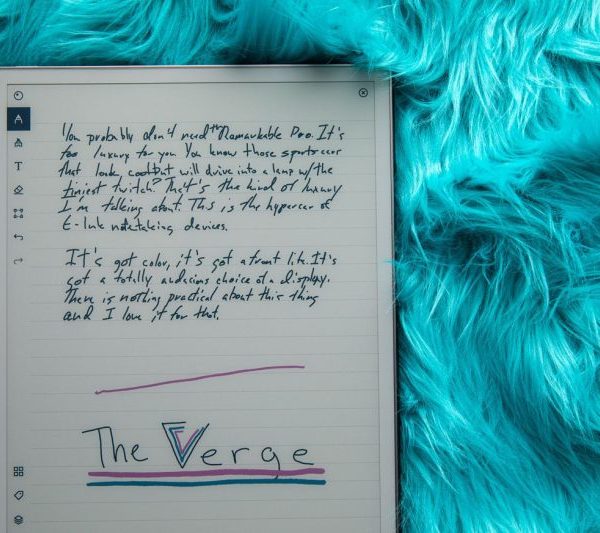 You probably don't need the Remarkable Pro. It's
too luxury for you. You know those sports car
that look cool but will drive into a lamp w/the
tiniest twitch? That's the kind of luxury
I'm talking about. This is the hypercar of
E-Ink notetaking devices.
It's got color, it's got a front lite. It's
got a totally audacious choice of a display.
There is nothing practical about this thing
and I love it for that.
The Verge